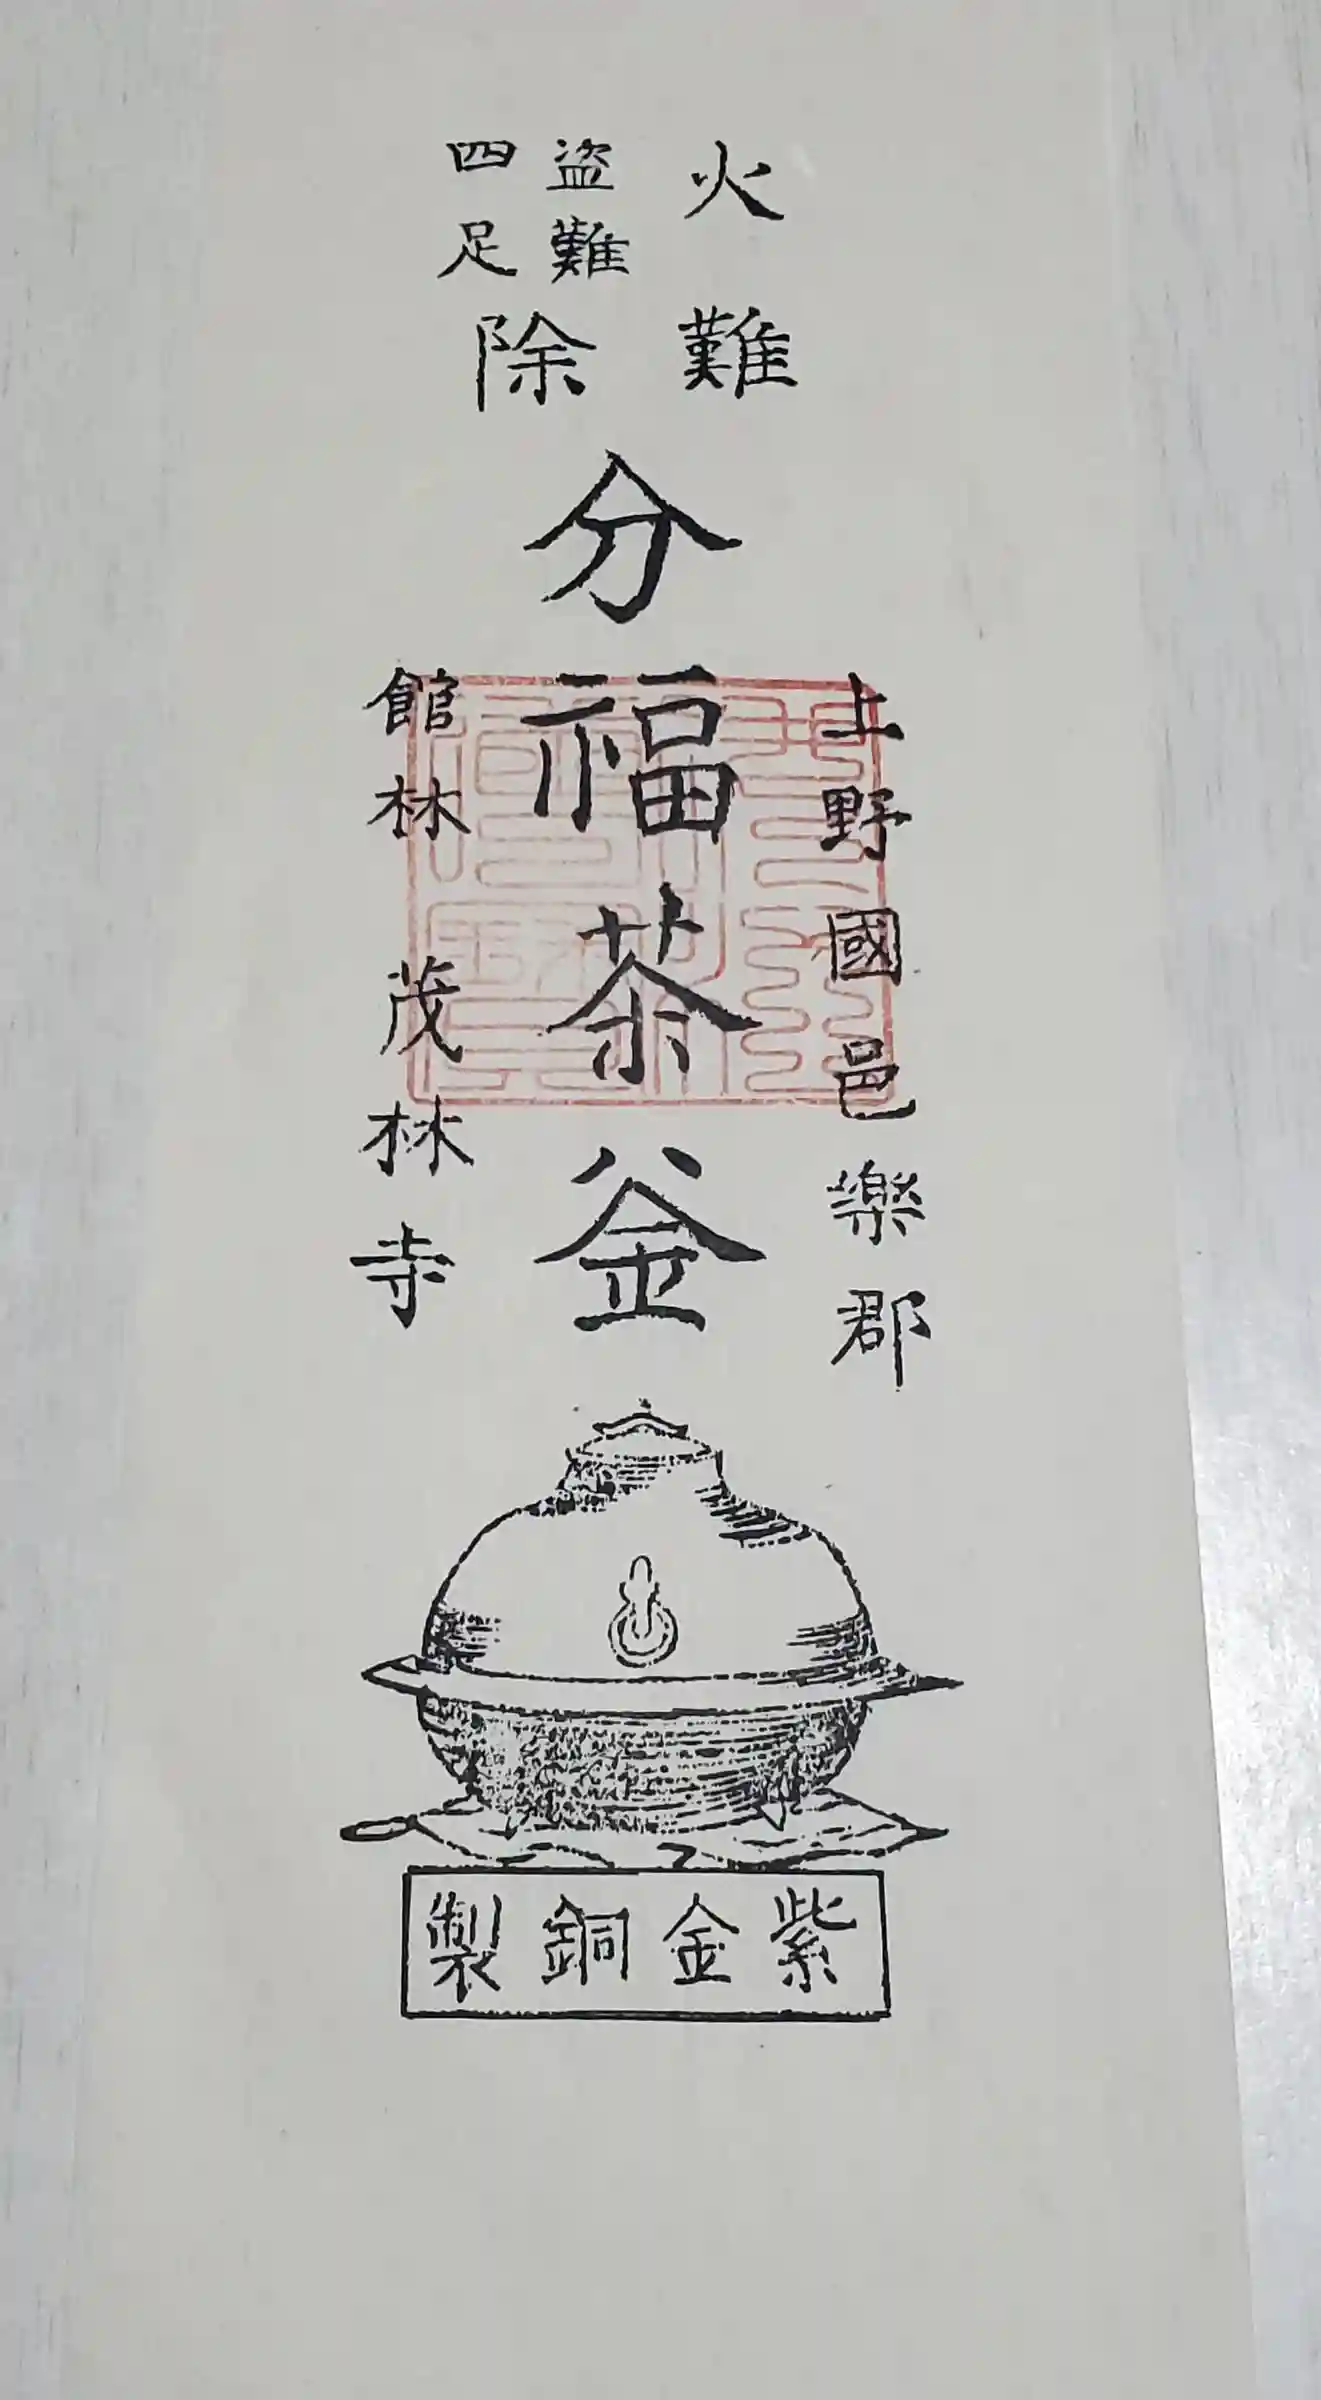 火難
盗難
四足
除
上野國邑樂郡
分福茶釜
館林茂林寺
紫金銅製